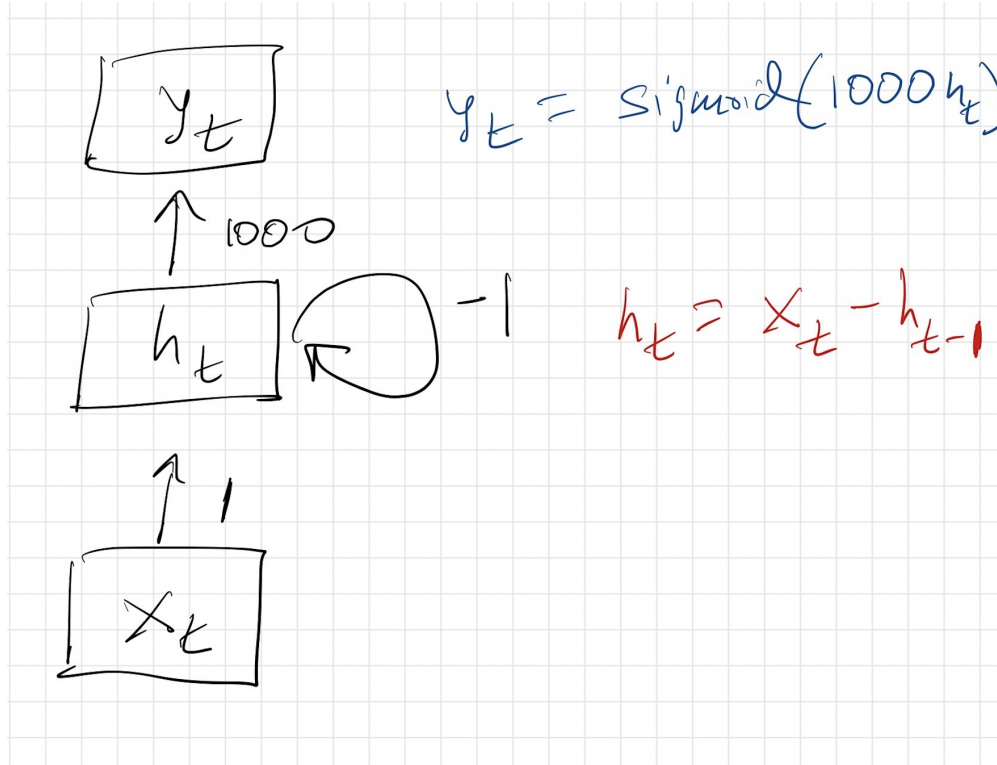 y_t
y_t = sigmoid(1000h_t)
1000
h_t
-1
h_t = x_t - h_{t-1}
1
x_t